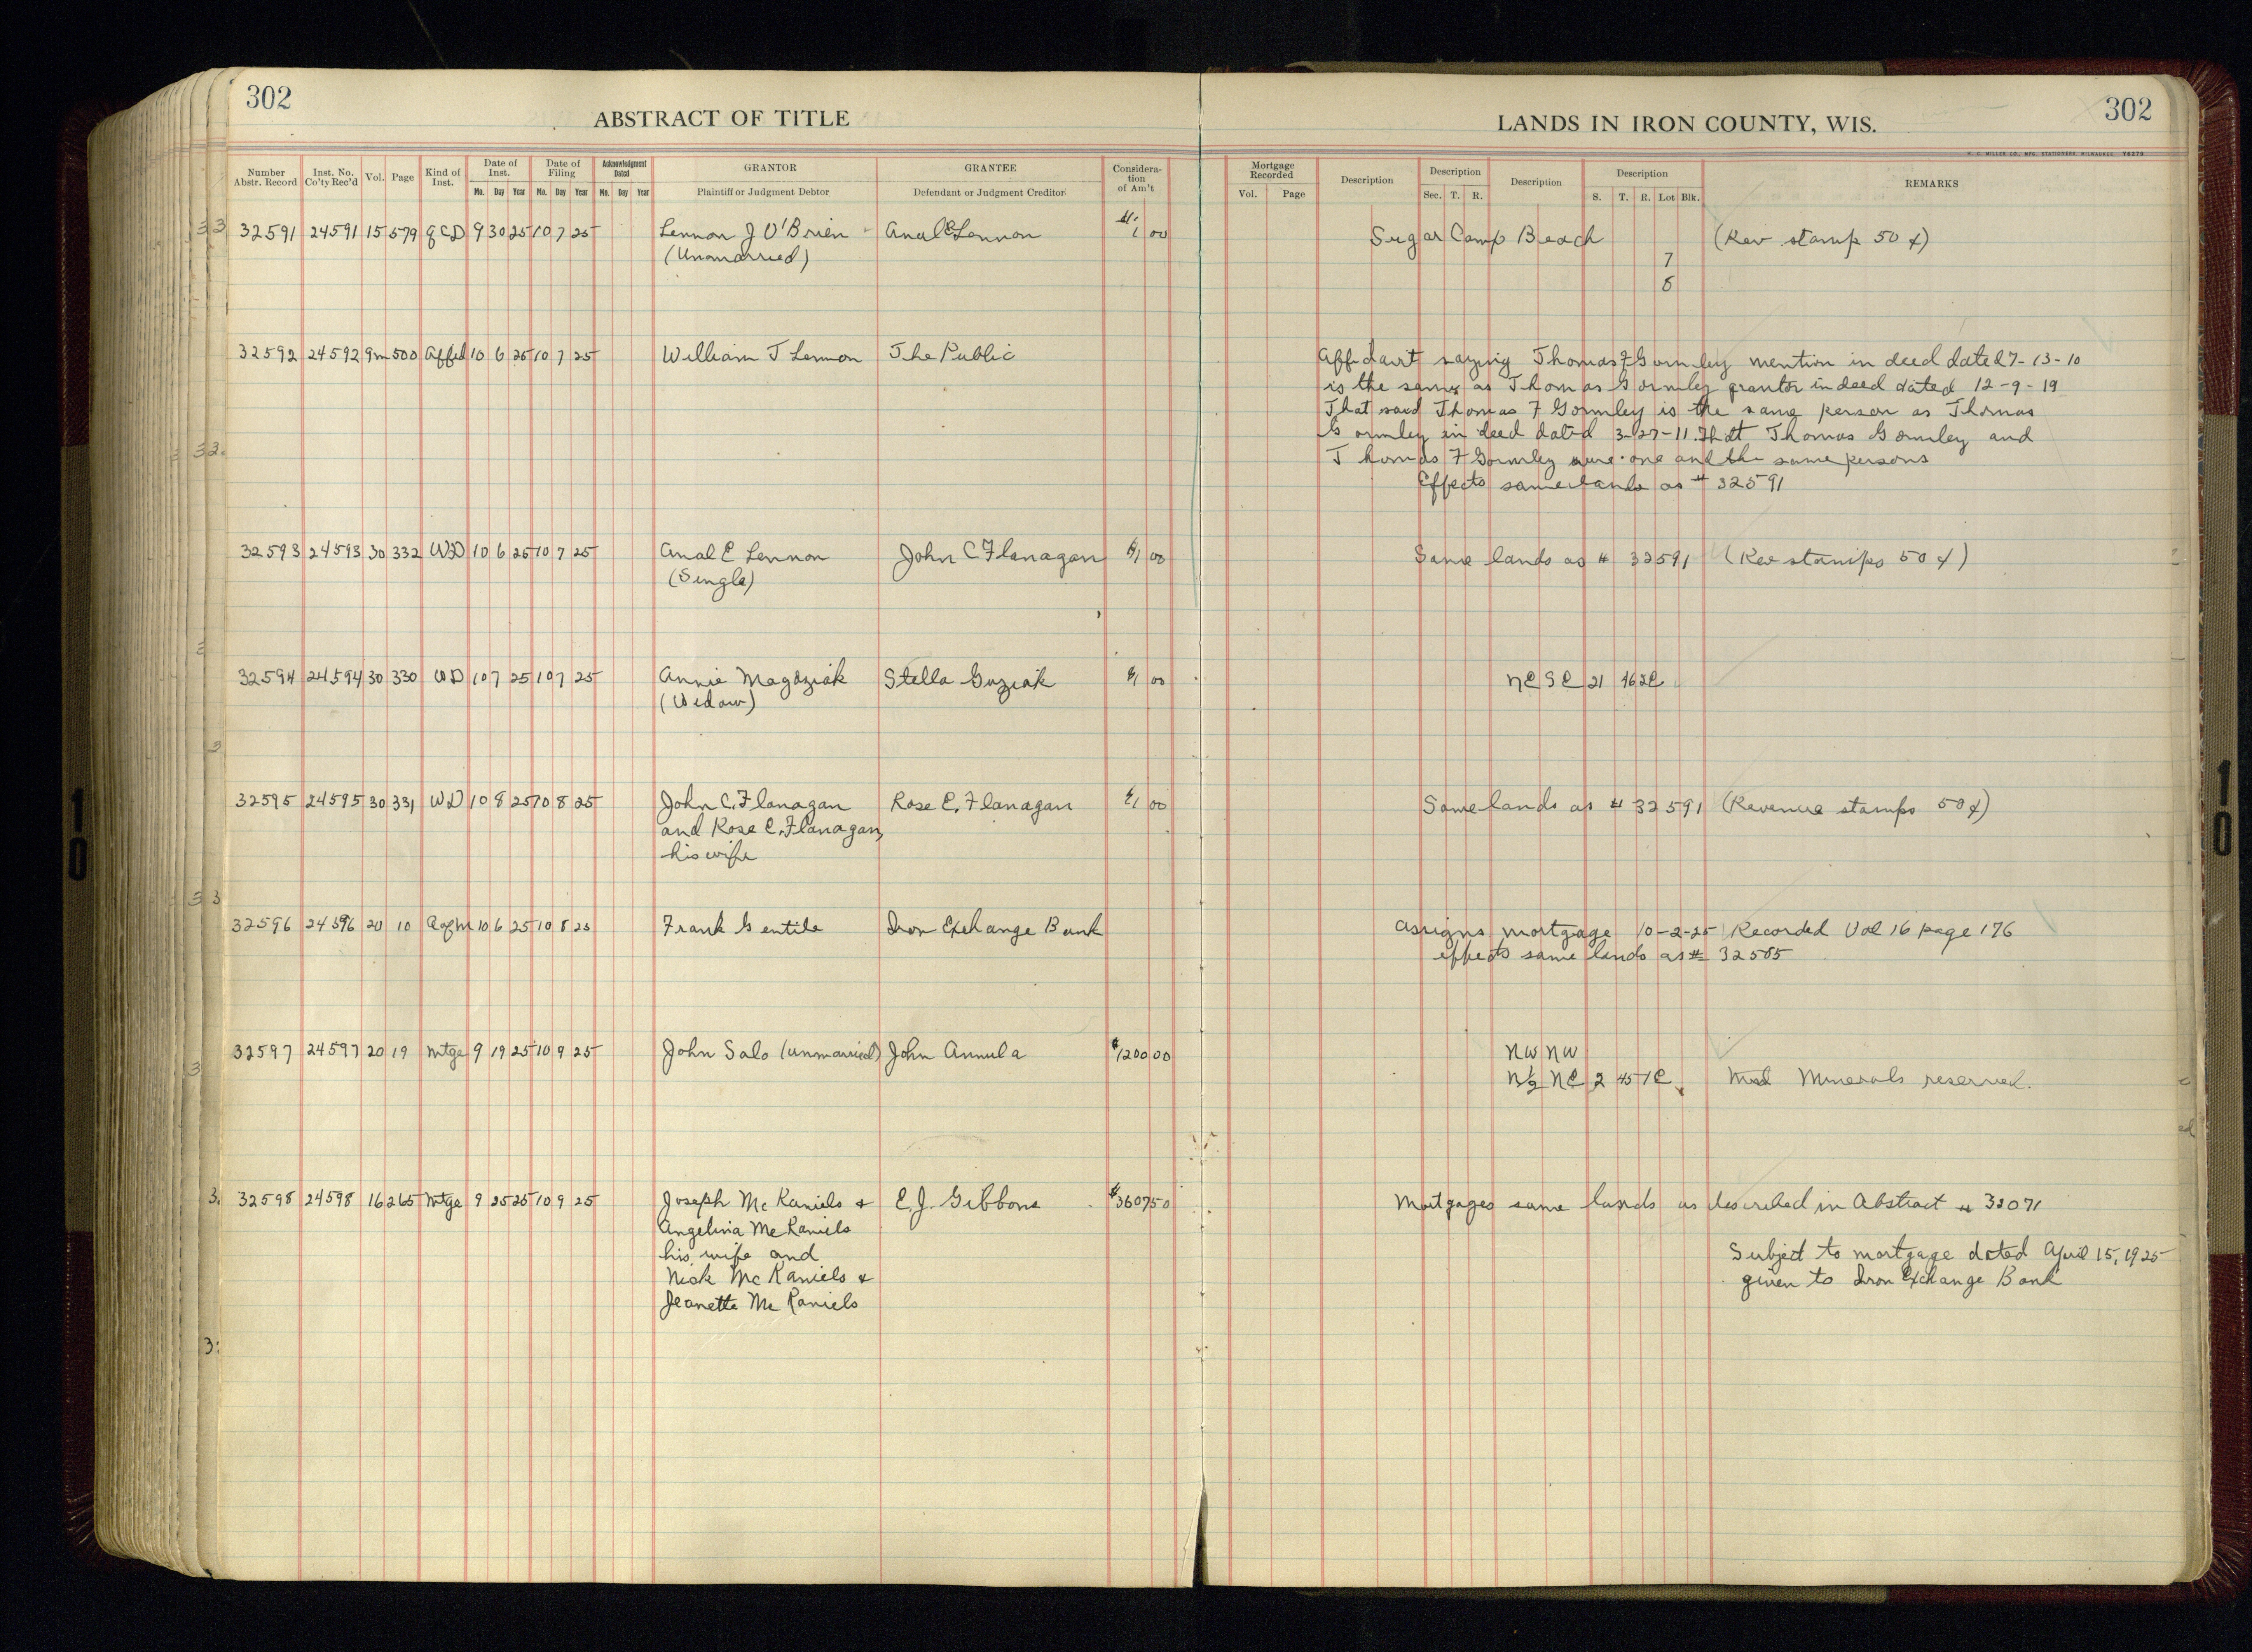 302
ABSTRACT OF TITLE
LANDS IN IRON COUNTY, WIS.
302
H. C. MILLER CO., MFG. STATIONERS, MILWAUKEE Y6279
Number Abstr. Record | Inst. No. Co'ty Rec'd | Vol. | Page | Kind of Inst. | Date of Inst. Mo. Day Year | Date of Filing Mo. Day Year | Acknowledgment Dated Mo. Day Year | GRANTOR Plaintiff or Judgment Debtor | GRANTEE Defendant or Judgment Creditor | Consideration of Am't | Mortgage Recorded Vol. Page | Description | Description Sec. T. R. | Description | Description S. T. R. Lot Blk. | REMARKS
32591 24591 15 579 QCD 9 30 25 10 7 25 Lennon J O'Brien Anal E Lennon 1 00 Sugar Camp Beach (Rev. stamp 50 ¢)
(Unmarried) 7
8
32592 24592 9m 500 Affid 10 6 25 10 7 25 William J Lennon The Public Affidavit saying Thomas F Gormley mention in deed dated 7-13-10
is the same as Thomas Gormley grantor in deed dated 12-9-19
That said Thomas F Gormley is the same person as Thomas
Gormley in deed dated 3-27-11. That Thomas Gormley and
Thomas F Gormley were one and the same persons
Effects same lands as # 32591
32593 24593 30 332 WD 10 6 25 10 7 25 Anal E Lennon John C Flanagan $1 00 Same lands as # 32591 (Rev stamps 50 ¢)
(Single)
32594 24594 30 330 WD 10 7 25 10 7 25 Annie Magdziak Stella Guziak $1 00 NE SE 21 46 2E
(Widow)
32595 24595 30 331 WD 10 8 25 10 8 25 John C. Flanagan Rose E. Flanagan $1 00 Same lands as # 32591 (Revenue stamps 50 ¢)
and Rose E. Flanagan,
his wife
32596 24596 20 10 Aofm 10 6 25 10 8 25 Frank Gentile Iron Exchange Bank Assigns mortgage 10-2-25 Recorded Vol 16 page 176
effects same lands as # 32585
32597 24597 20 19 mtge 9 19 25 10 9 25 John Salo (unmarried) John Annula $1200 00 NW NW
N½ NE 2 45 1E Minerals reserved.
32598 24598 16 265 mtge 9 25 25 10 9 25 Joseph Mc Raniels & E. J. Gibbons $3607 50 Mortgages same lands as described in Abstract # 32071
Angelina Mc Raniels
his wife and Subject to mortgage dated April 15, 1925
Nick Mc Raniels & given to Iron Exchange Bank
Jeanette Mc Raniels